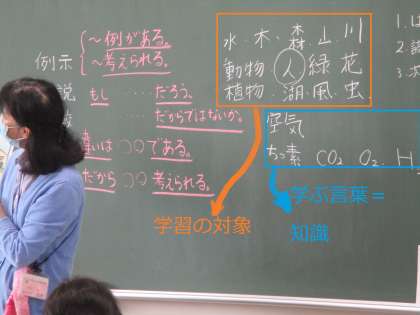 例示
～例がある。
～考えられる。
説
もし……だろう。
だからではないか。
違いは〇〇である。
だから〇〇考えられる。
水・木・森・山・川
動物・人・緑・花
植物・湖・風・虫
空気
ちっ素 CO₂ O₂ H
学習の対象
学ぶ言葉＝
知識
1.
2.
3.